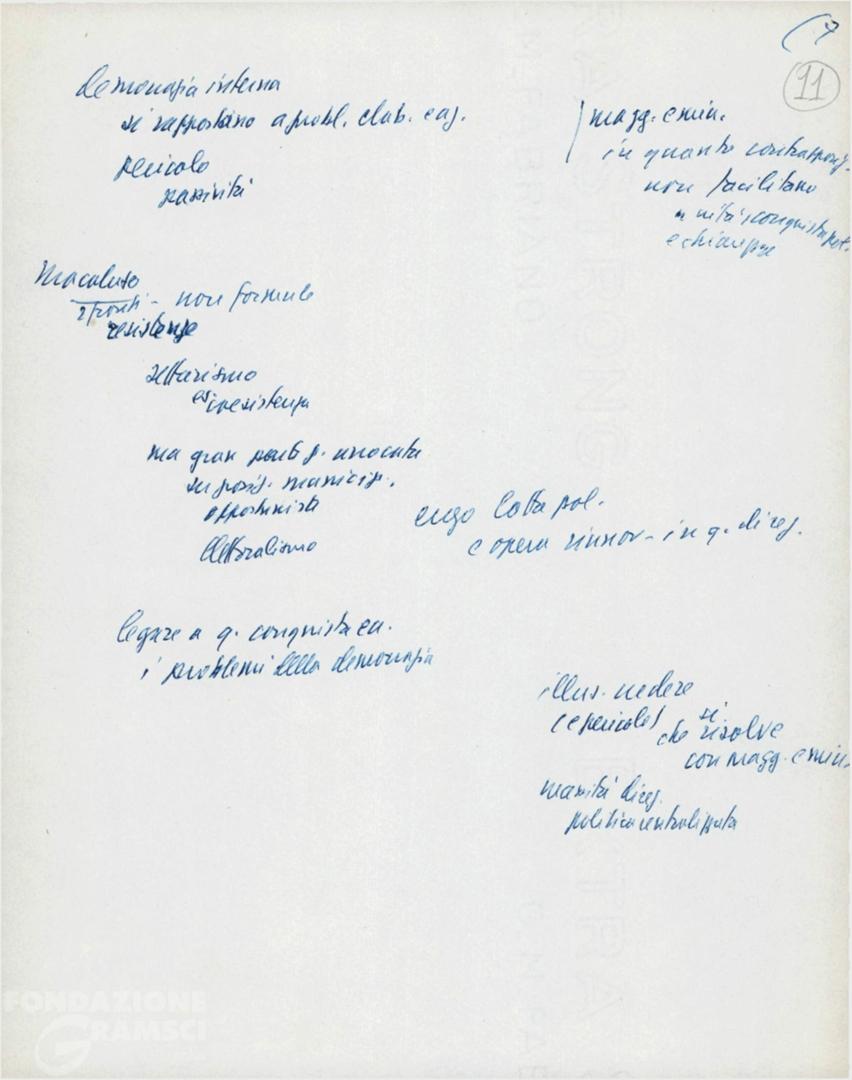 (7
11
democrazia interna
si rapportano a probl. elab. eag.
pericolo
passività
magg. e min.
in quanto contrappong.
non facilitano
unità, conquista pot.
e chiarezze
Macaluso
2 fronti - non formule
resistenze
settarismo
es. inesistenza
ma gran parte p. arroccata
su posiz. municip.
opportuniste
elettoralismo
lotta pol.
e opera rinnov. - in q. direz.
legare a q. conquista
i problemi della democrazia
illus. vedere
(e pericolo) che si risolve
con magg. e min.
direz.
politica centralizzata
FONDAZIONE
GRAMSCI